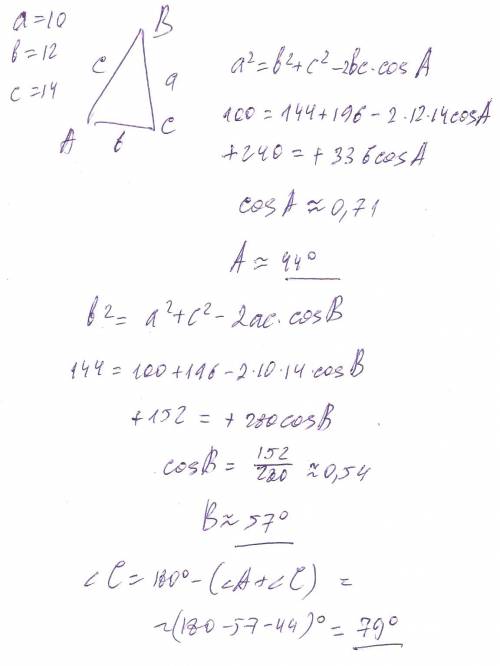 a=10
в=12
c=14
B
c
a
A
в
C
a²=в²+c²-2вc·cosA
100=144+196-2·12·14cosA
+240=+336cosA
cosA≈0,71
A≈44°
в²=a²+c²-2ac·cosB
144=100+196-2·10·14·cosB
+152=+280cosB
cosB=152/280≈0,54
B≈57°
∠C=180°-(∠A+∠C)=
≈(180-57-44)°=79°